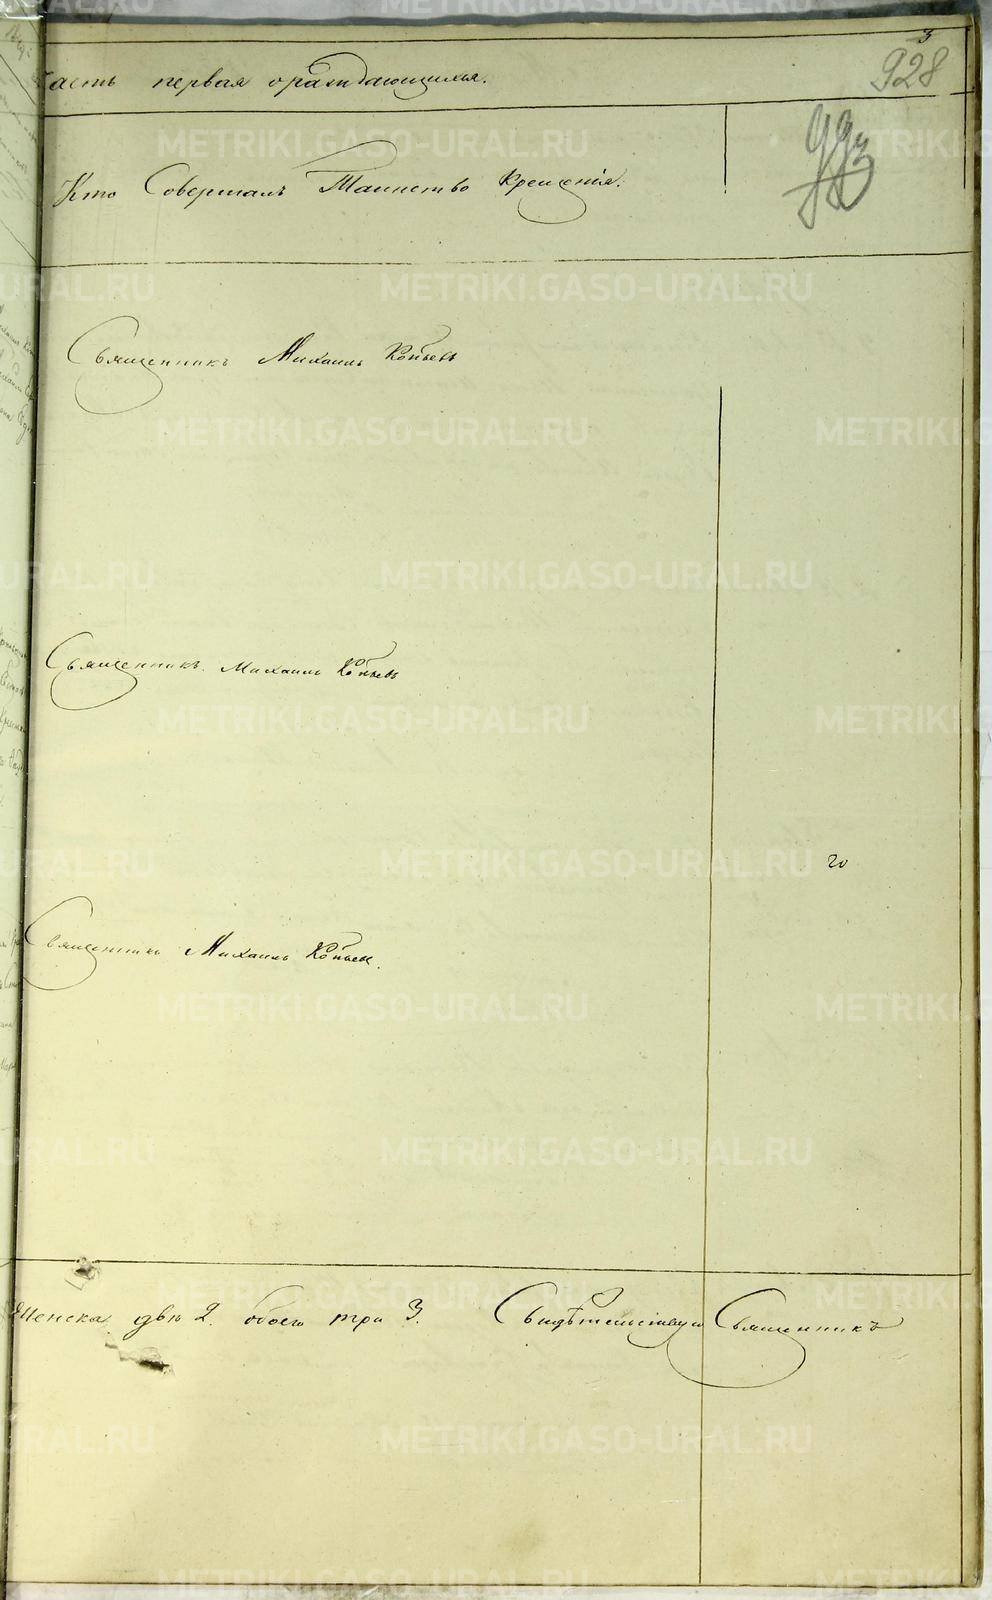 3
928
Часть первая о раждающихся.
993
Кто Совершалъ Таинство Крещенія.
Священникъ Михаилъ Копьевъ
Священникъ Михаилъ Копьевъ
20
Священникъ Михаилъ Копьевъ.
Женска двѣ 2. обоего три 3. Свидѣтельствую Священникъ
METRIKI.GASO-URAL.RU